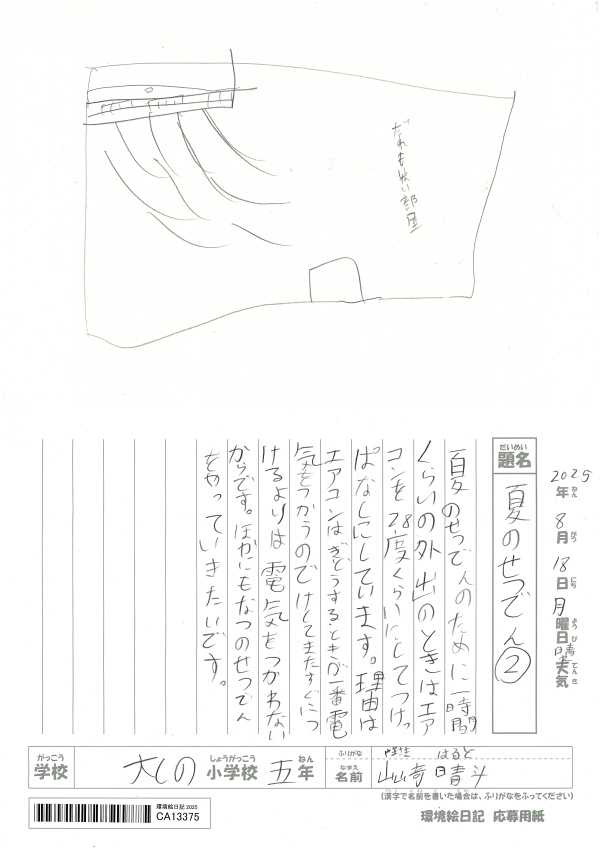 だれも状い部屋
2025年ねん 8月がつ 18日にち 月曜日ようび 晴天気てんき
だいめい
題名
夏のせつでん②
夏のせつでんのために一時間
くらいの外出のときはエア
コンを28度くらいにしてつけっ
ぱなしにしています。理由は
エアコンはきどうするときが一番電
気をつかうのでけしてまたすぐにつ
けるよりは電気をつかわない
からです。ほかにもなつのせつでん
をやっていきたいです。
がっこう 学校
大しの しょうがっこう 小学校 五 ねん 年
ふりがな はると
なまえ 名前 山崎晴斗
(漢字で名前を書いた場合は、ふりがなをふってください)
環境絵日記 2025
CA13375
環境絵日記 応募用紙